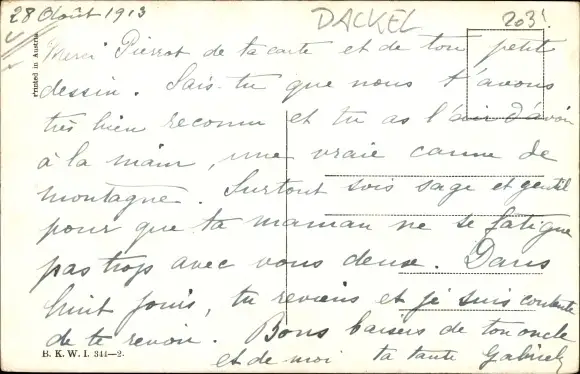 28 Août 1913
DACKEL
203!
Printed in Austria
Merci Pierrot de ta carte et de ton petit
dessin. Sais-tu que nous t'avons
très bien reconnu et tu as l'air d'avoir
à la main, une vraie canne de
montagne. Surtout sois sage et gentil
pour que ta maman ne se fatigue
pas trop avec vous deux. Dans
huit jours, tu reviens et je suis contente
de te revoir. Bons baisers de ton oncle
et de moi ta tante
B. K. W. I. 344—2.